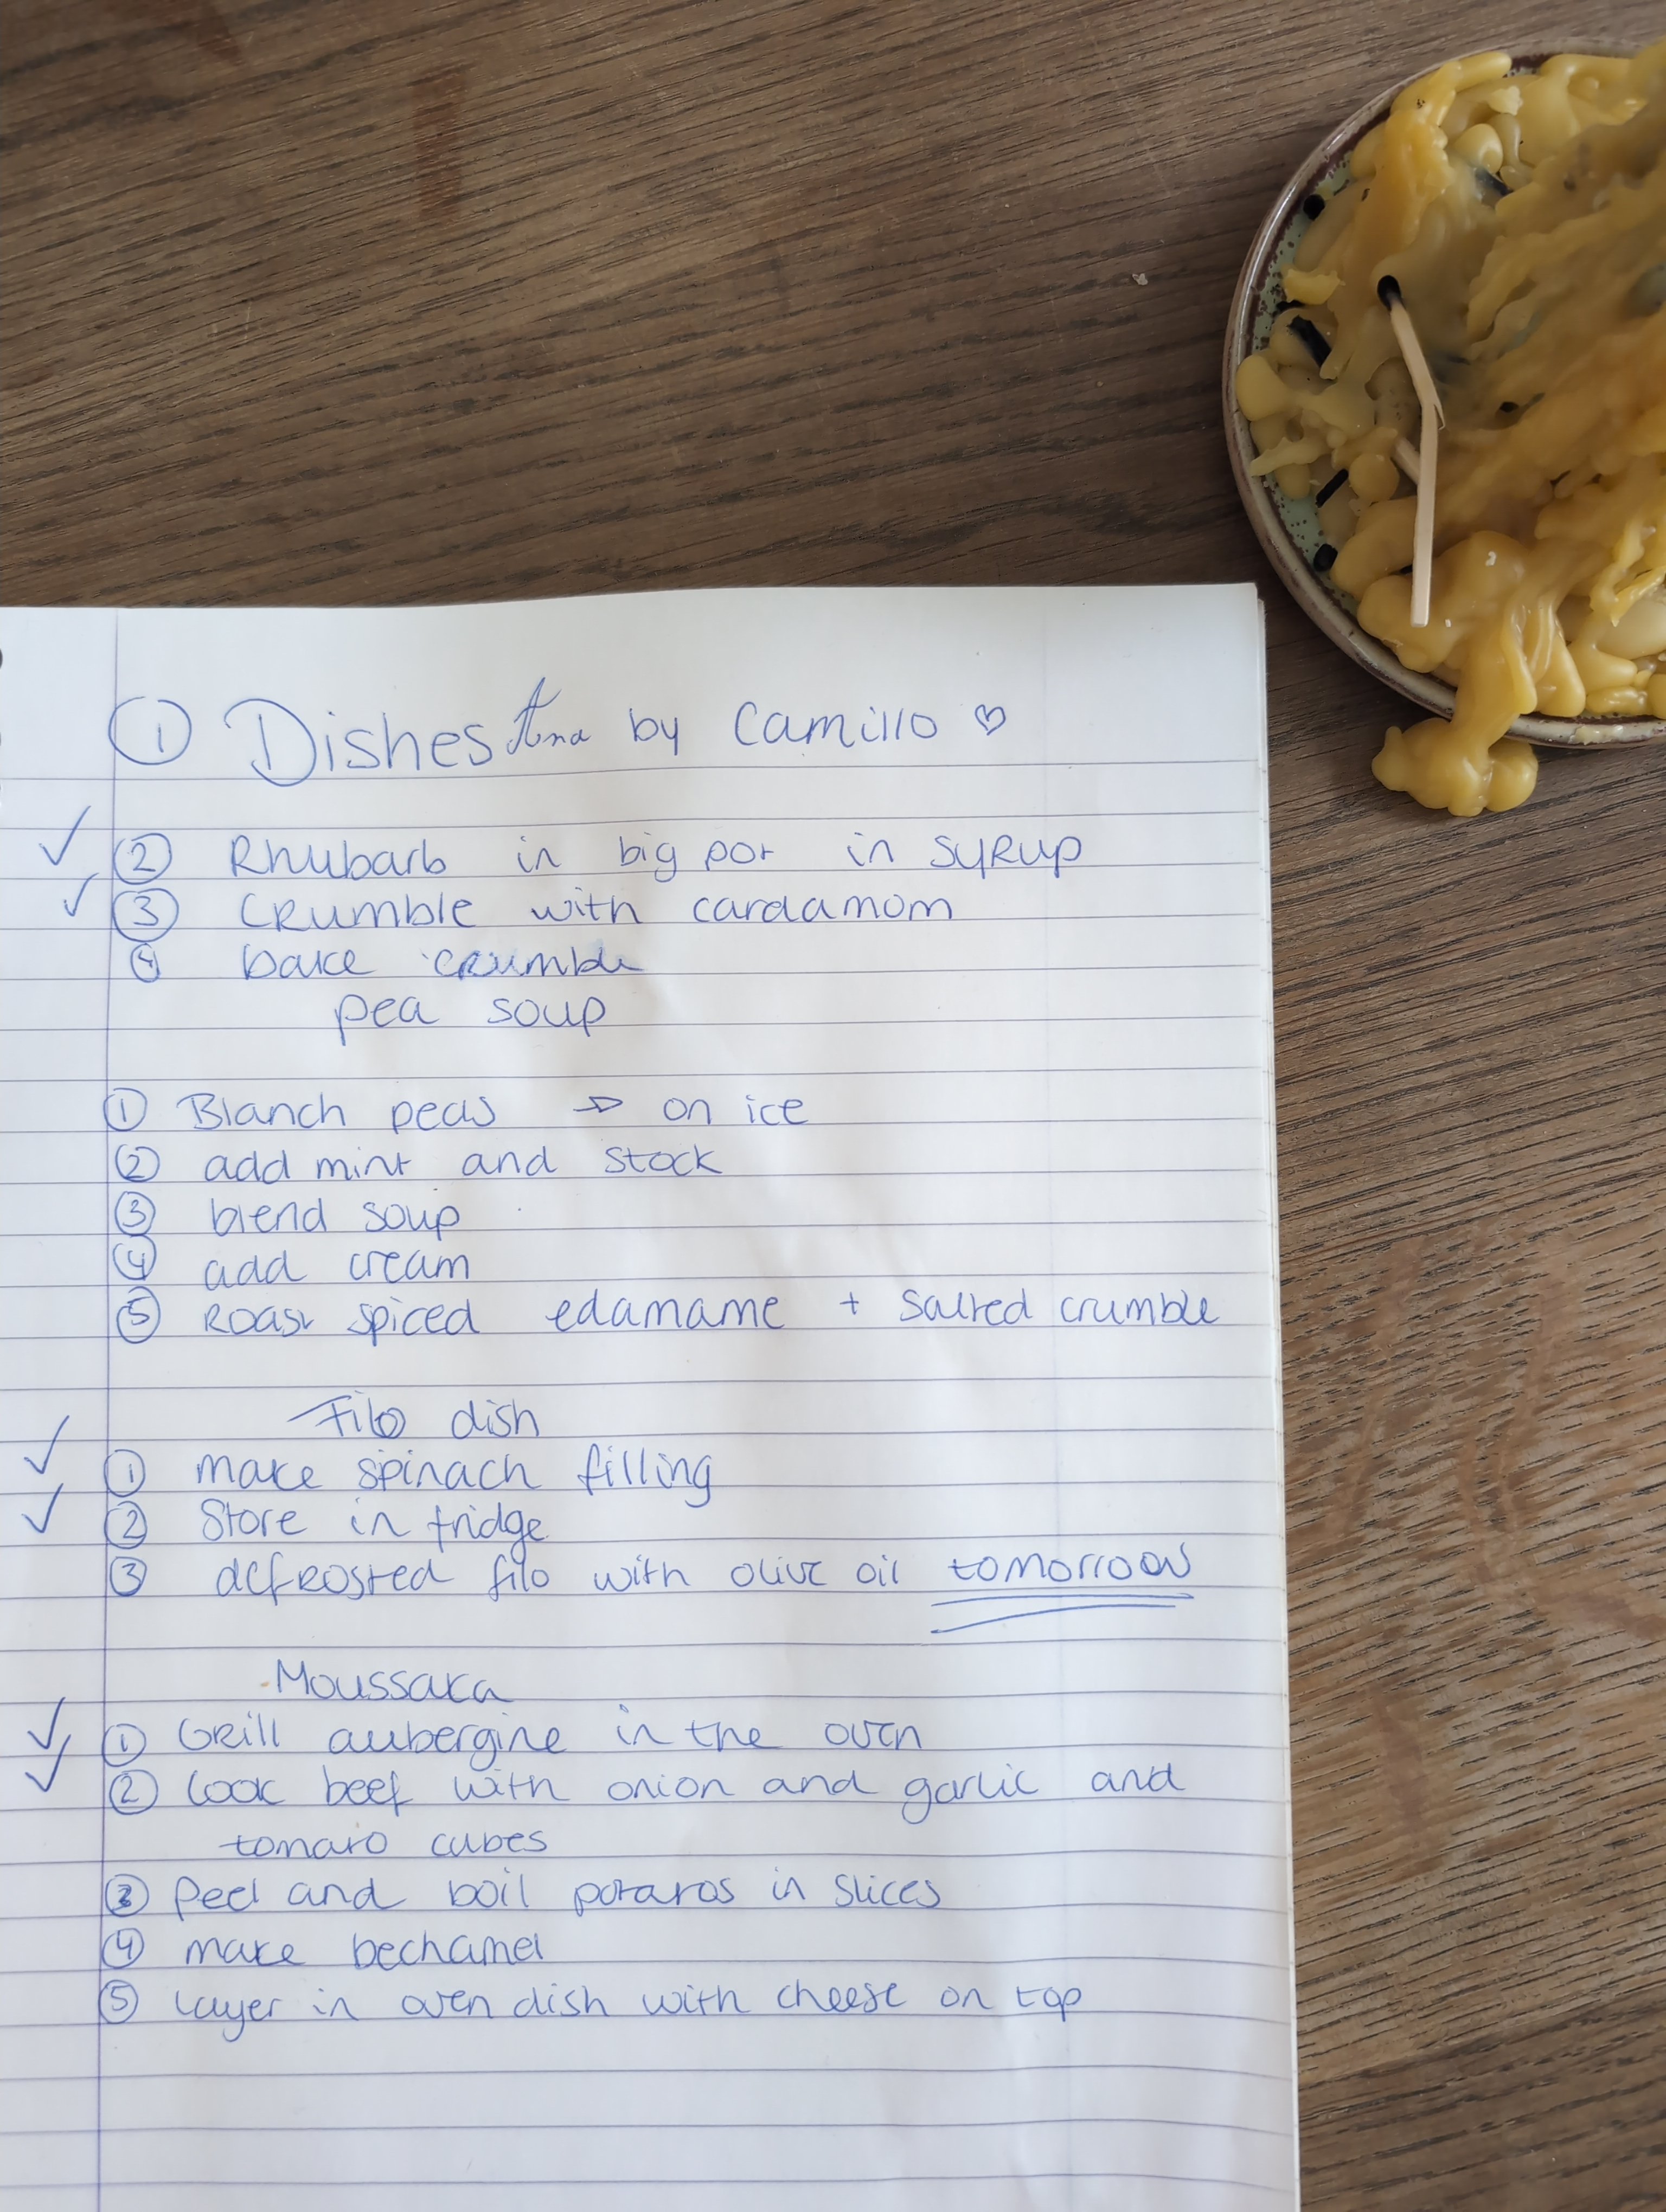 ① Dishes Ana by Camillo ♡
✓ ② Rhubarb in big pot in syrup
✓ ③ Crumble with cardamom
④ bake crumble
pea soup
① Blanch peas → on ice
② add mint and stock
③ blend soup
④ add cream
⑤ Roast spiced edamame + salted crumble
Filo dish
✓ ① make spinach filling
✓ ② Store in fridge
③ defrosted filo with olive oil tomorrow
Moussaka
✓ ① Grill aubergine in the oven
✓ ② Cook beef with onion and garlic and
tomato cubes
③ Peel and boil potatos in slices
④ make bechamel
⑤ Layer in oven dish with cheese on top